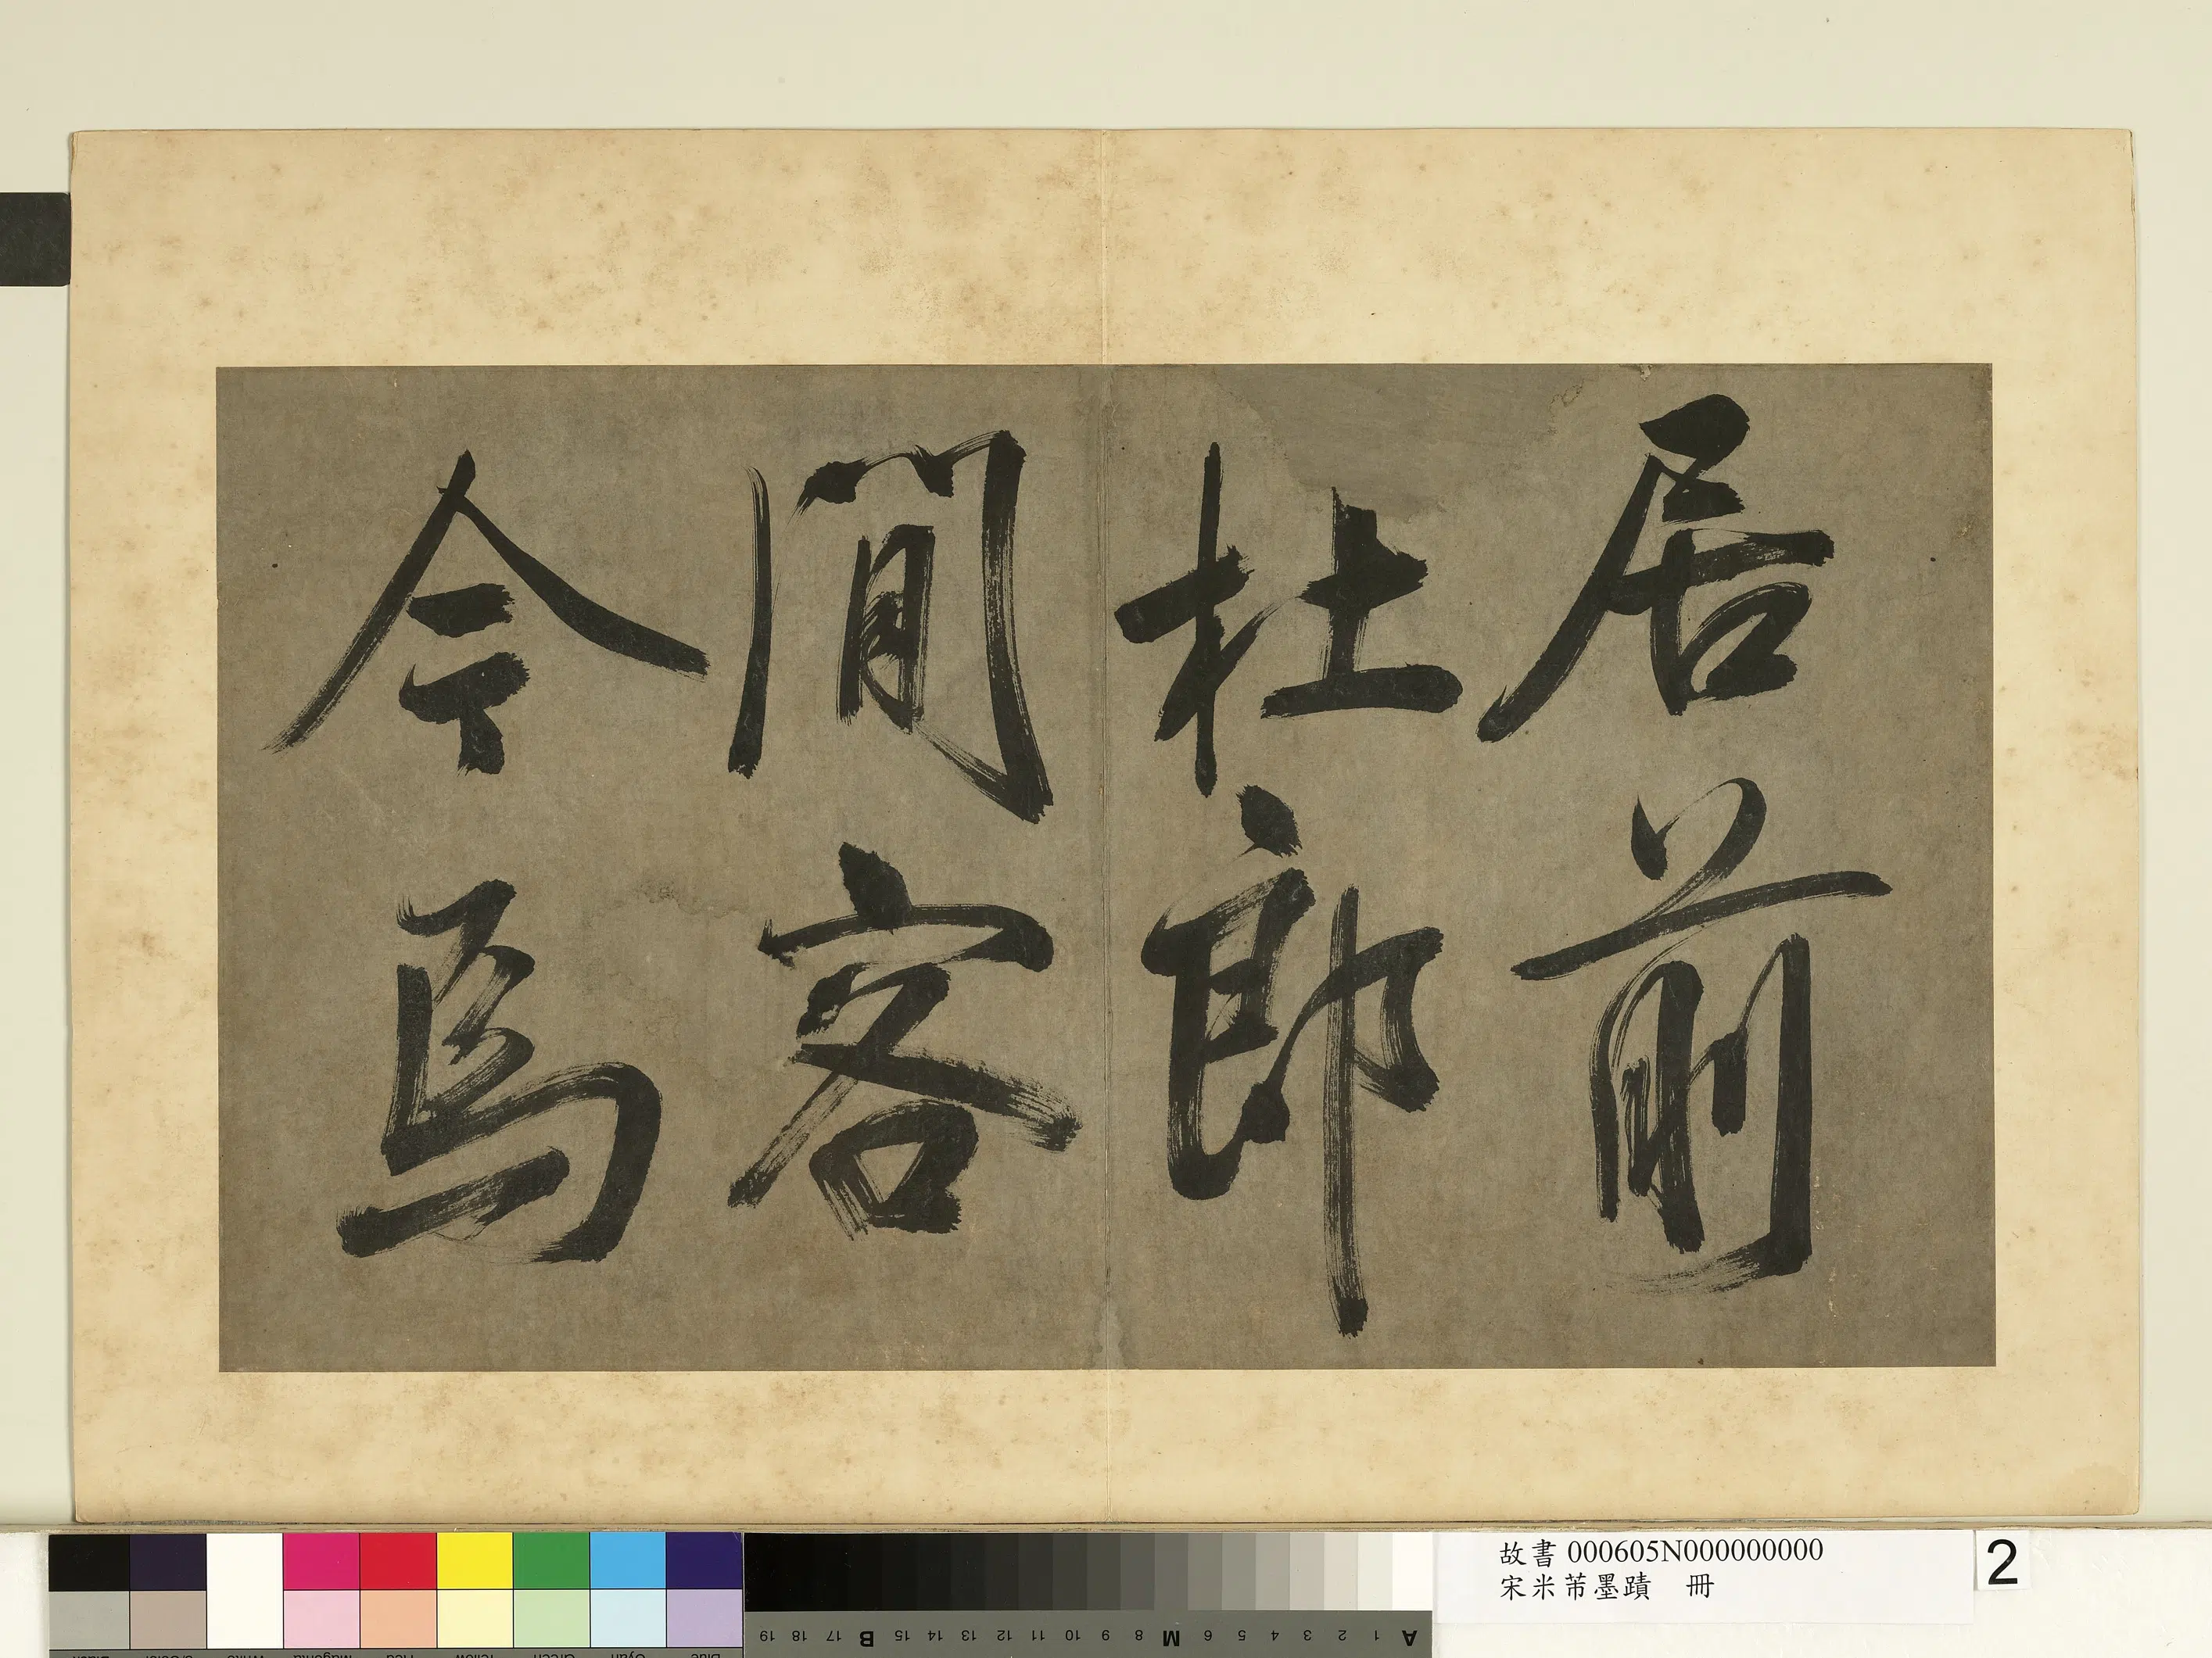 居前
杜郎
閒客
今焉
故書 000605N000000000
宋米芾墨蹟 冊
2
19 18 17 B 15 14 13 12 11 10 9 8 M 6 5 4 3 2 1 A